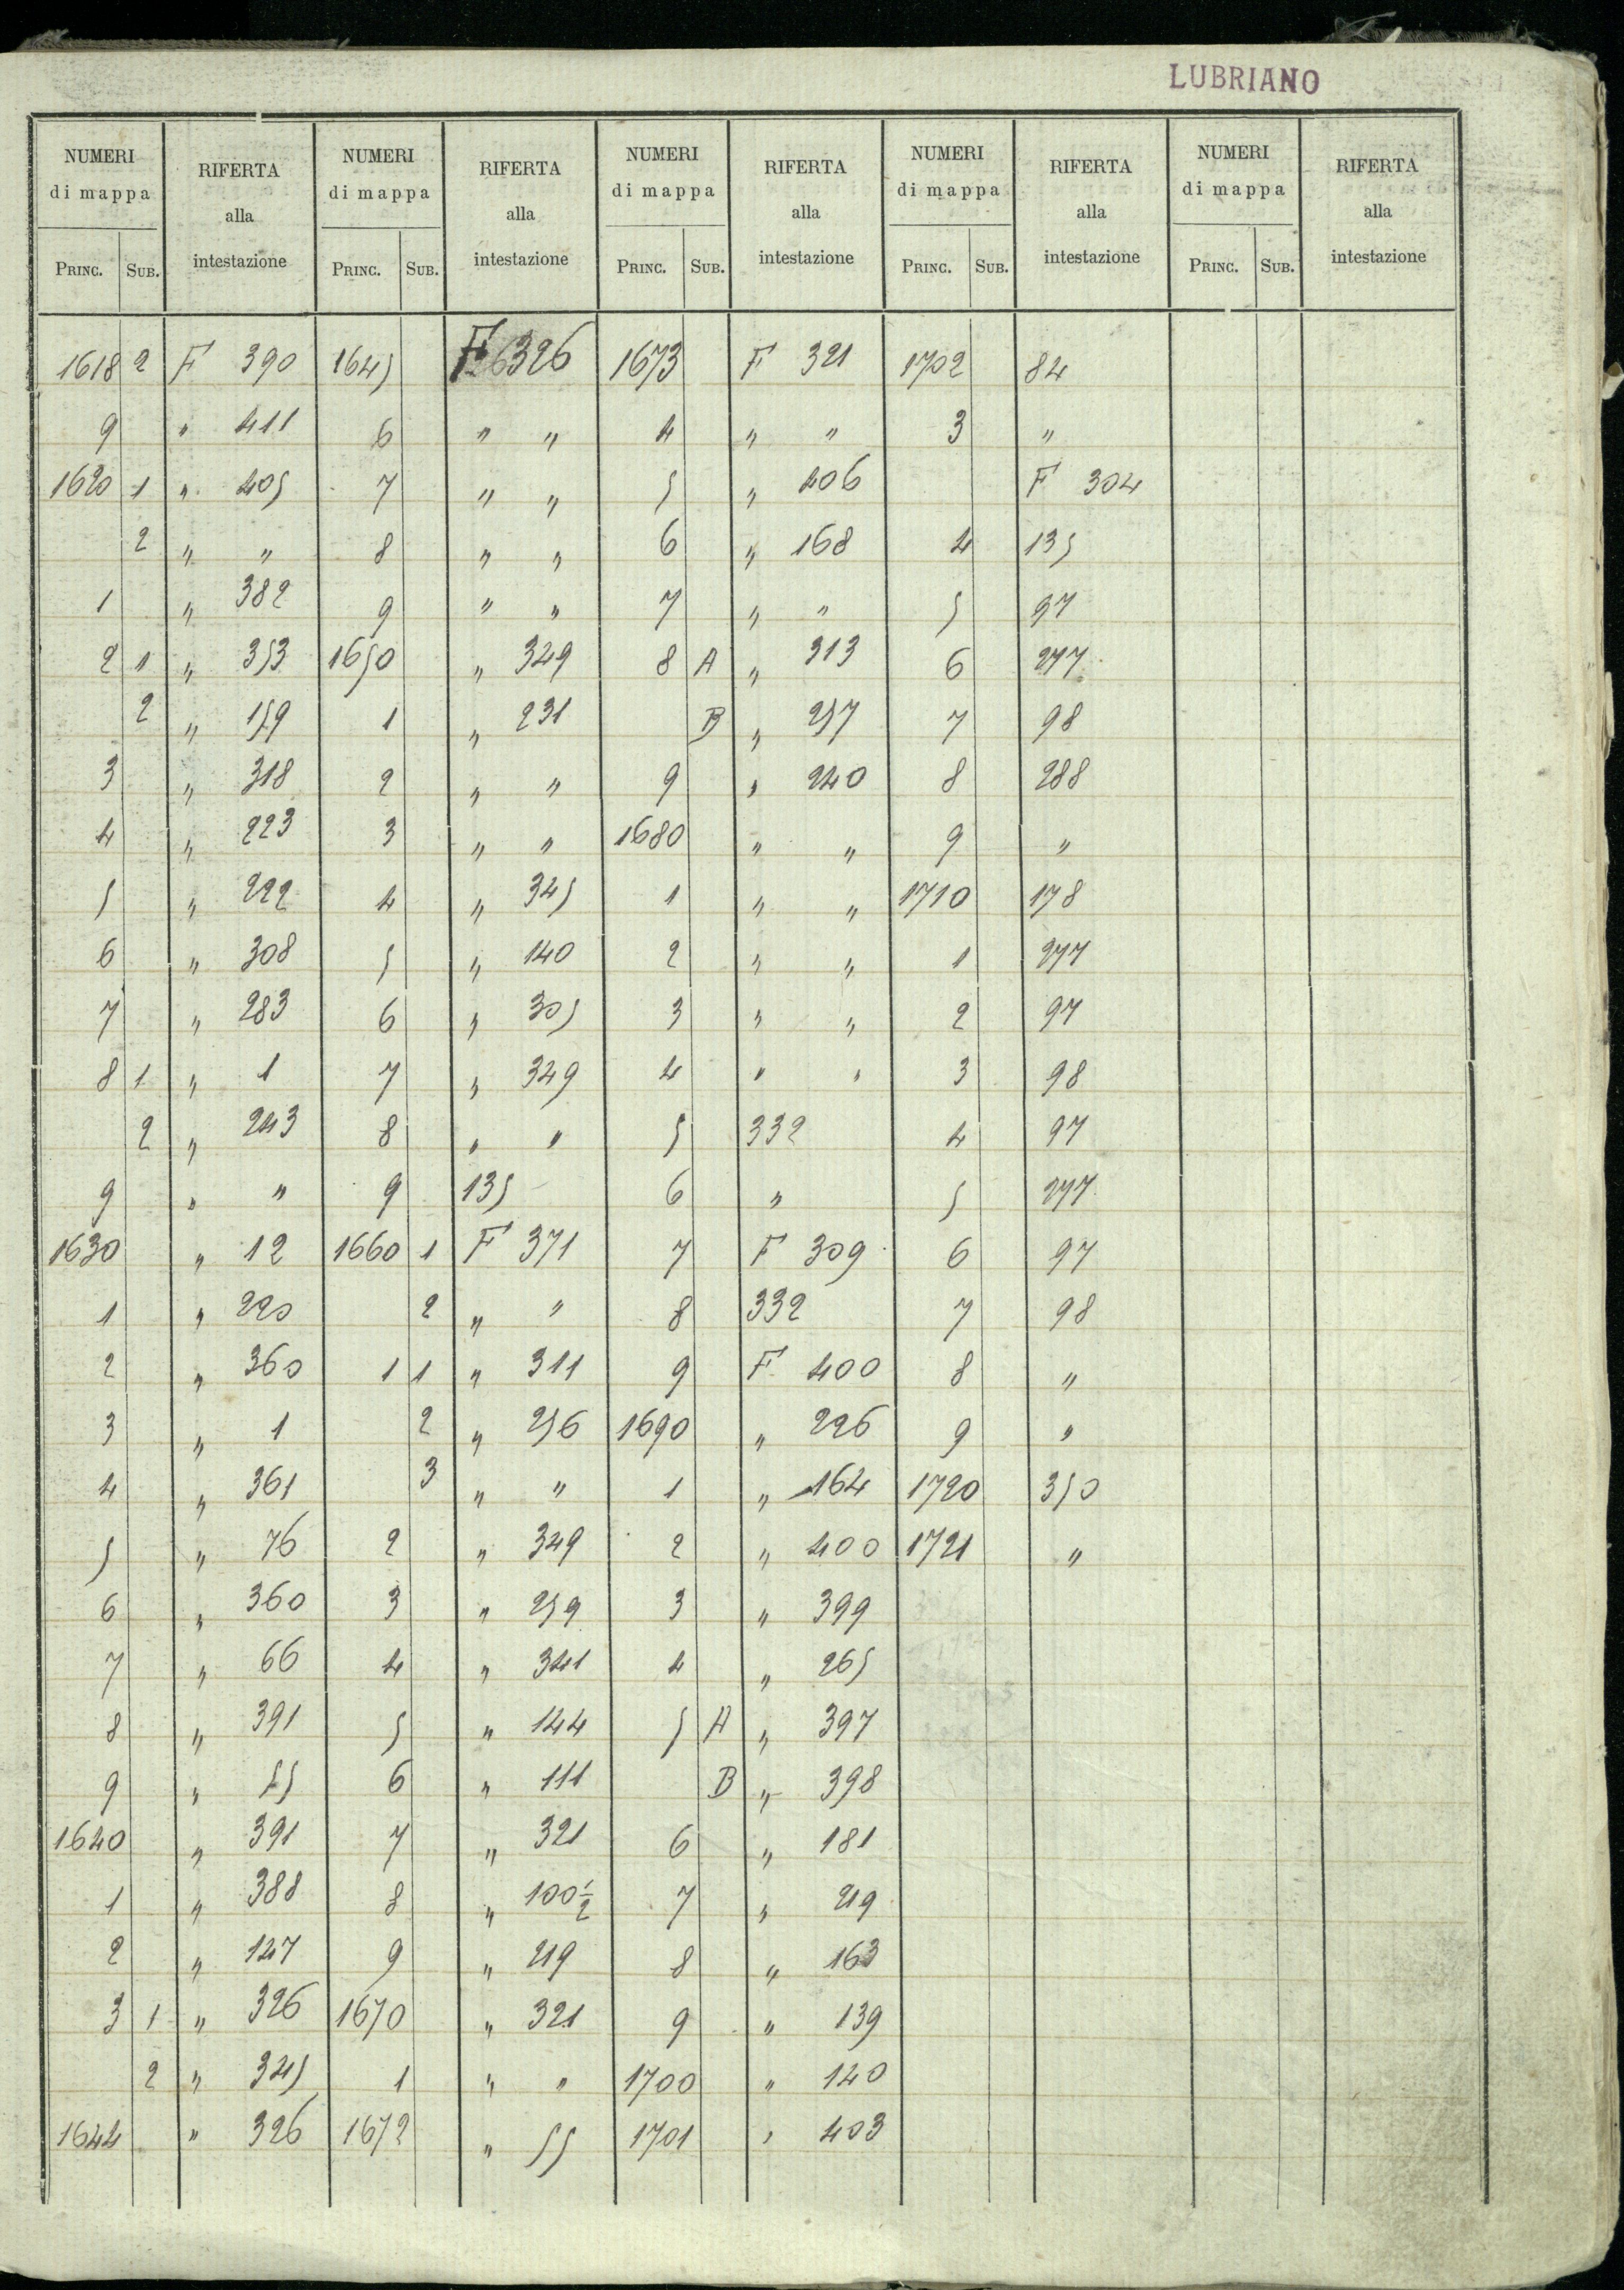 LUBRIANO
NUMERI di mappa RIFERTA alla intestazione NUMERI di mappa RIFERTA alla intestazione NUMERI di mappa RIFERTA alla intestazione NUMERI di mappa RIFERTA alla intestazione NUMERI di mappa RIFERTA alla intestazione
PRINC. SUB. PRINC. SUB. PRINC. SUB. PRINC. SUB. PRINC. SUB.
1618 2 F 390 1645 F 326 1673 F 321 1702 84
9 " 411 6 " " 4 " " 3 "
1620 1 " 405 7 " " 5 " 406 F 304
2 " " 8 " " 6 " 168 4 135
1 " 382 9 " " 7 " " 5 97
2 1 " 353 1650 " 349 8 A " 313 6 277
2 " 159 1 " 231 B " 257 7 98
3 " 318 2 " " 9 " 240 8 288
4 " 223 3 " " 1680 " " 9 "
5 " 222 4 " 345 1 " " 1710 178
6 " 308 5 " 140 2 " " 1 277
7 " 283 6 " 305 3 " " 2 97
8 1 " 1 7 " 349 4 " " 3 98
2 " 243 8 " " 5 332 4 97
9 " " 9 135 6 " 5 277
1630 " 12 1660 1 F 371 7 F 309 6 97
1 " 220 2 " " 8 332 7 98
2 " 360 1 1 " 311 9 F 400 8 "
3 " 1 2 " 256 1690 " 226 9 "
4 " 361 3 " " 1 " 164 1720 350
5 " 76 2 " 349 2 " 400 1721 "
6 " 360 3 " 259 3 " 399
7 " 66 4 " 341 4 " 265
8 " 391 5 " 144 5 A " 397
9 " 55 6 " 111 B " 398
1640 " 391 7 " 321 6 " 181
1 " 388 8 " 100 1/2 7 " 219
2 " 147 9 " 219 8 " 163
3 1 " 326 1670 " 321 9 " 139
2 " 345 1 " " 1700 " 140
1644 " 326 1672 " 55 1701 " 403